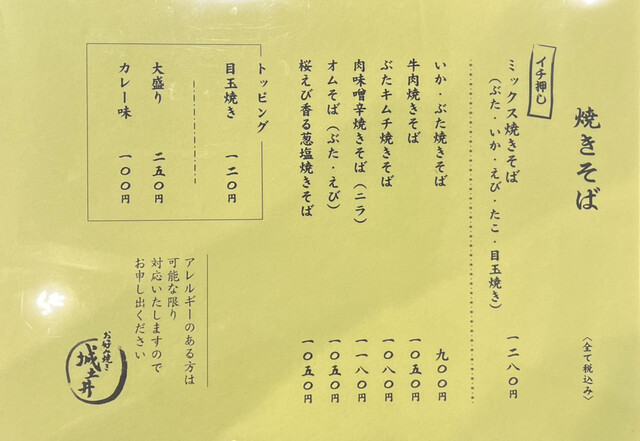 焼きそば
〈全て税込み〉
イチ押し
ミックス焼きそば 一二八〇円
（ぶた・いか・えび・たこ・目玉焼き）
いか・ぶた焼きそば 九〇〇円
牛肉焼きそば 一〇五〇円
ぶたキムチ焼きそば 一〇八〇円
肉味噌辛焼きそば（ニラ） 一一八〇円
オムそば（ぶた・えび） 一〇五〇円
桜えび香る葱塩焼きそば 一〇五〇円
トッピング
目玉焼き 一二〇円
大盛り 二五〇円
カレー味 一〇〇円
アレルギーのある方は
可能な限り
対応いたしますので
お申し出ください
お好み焼き
城土井